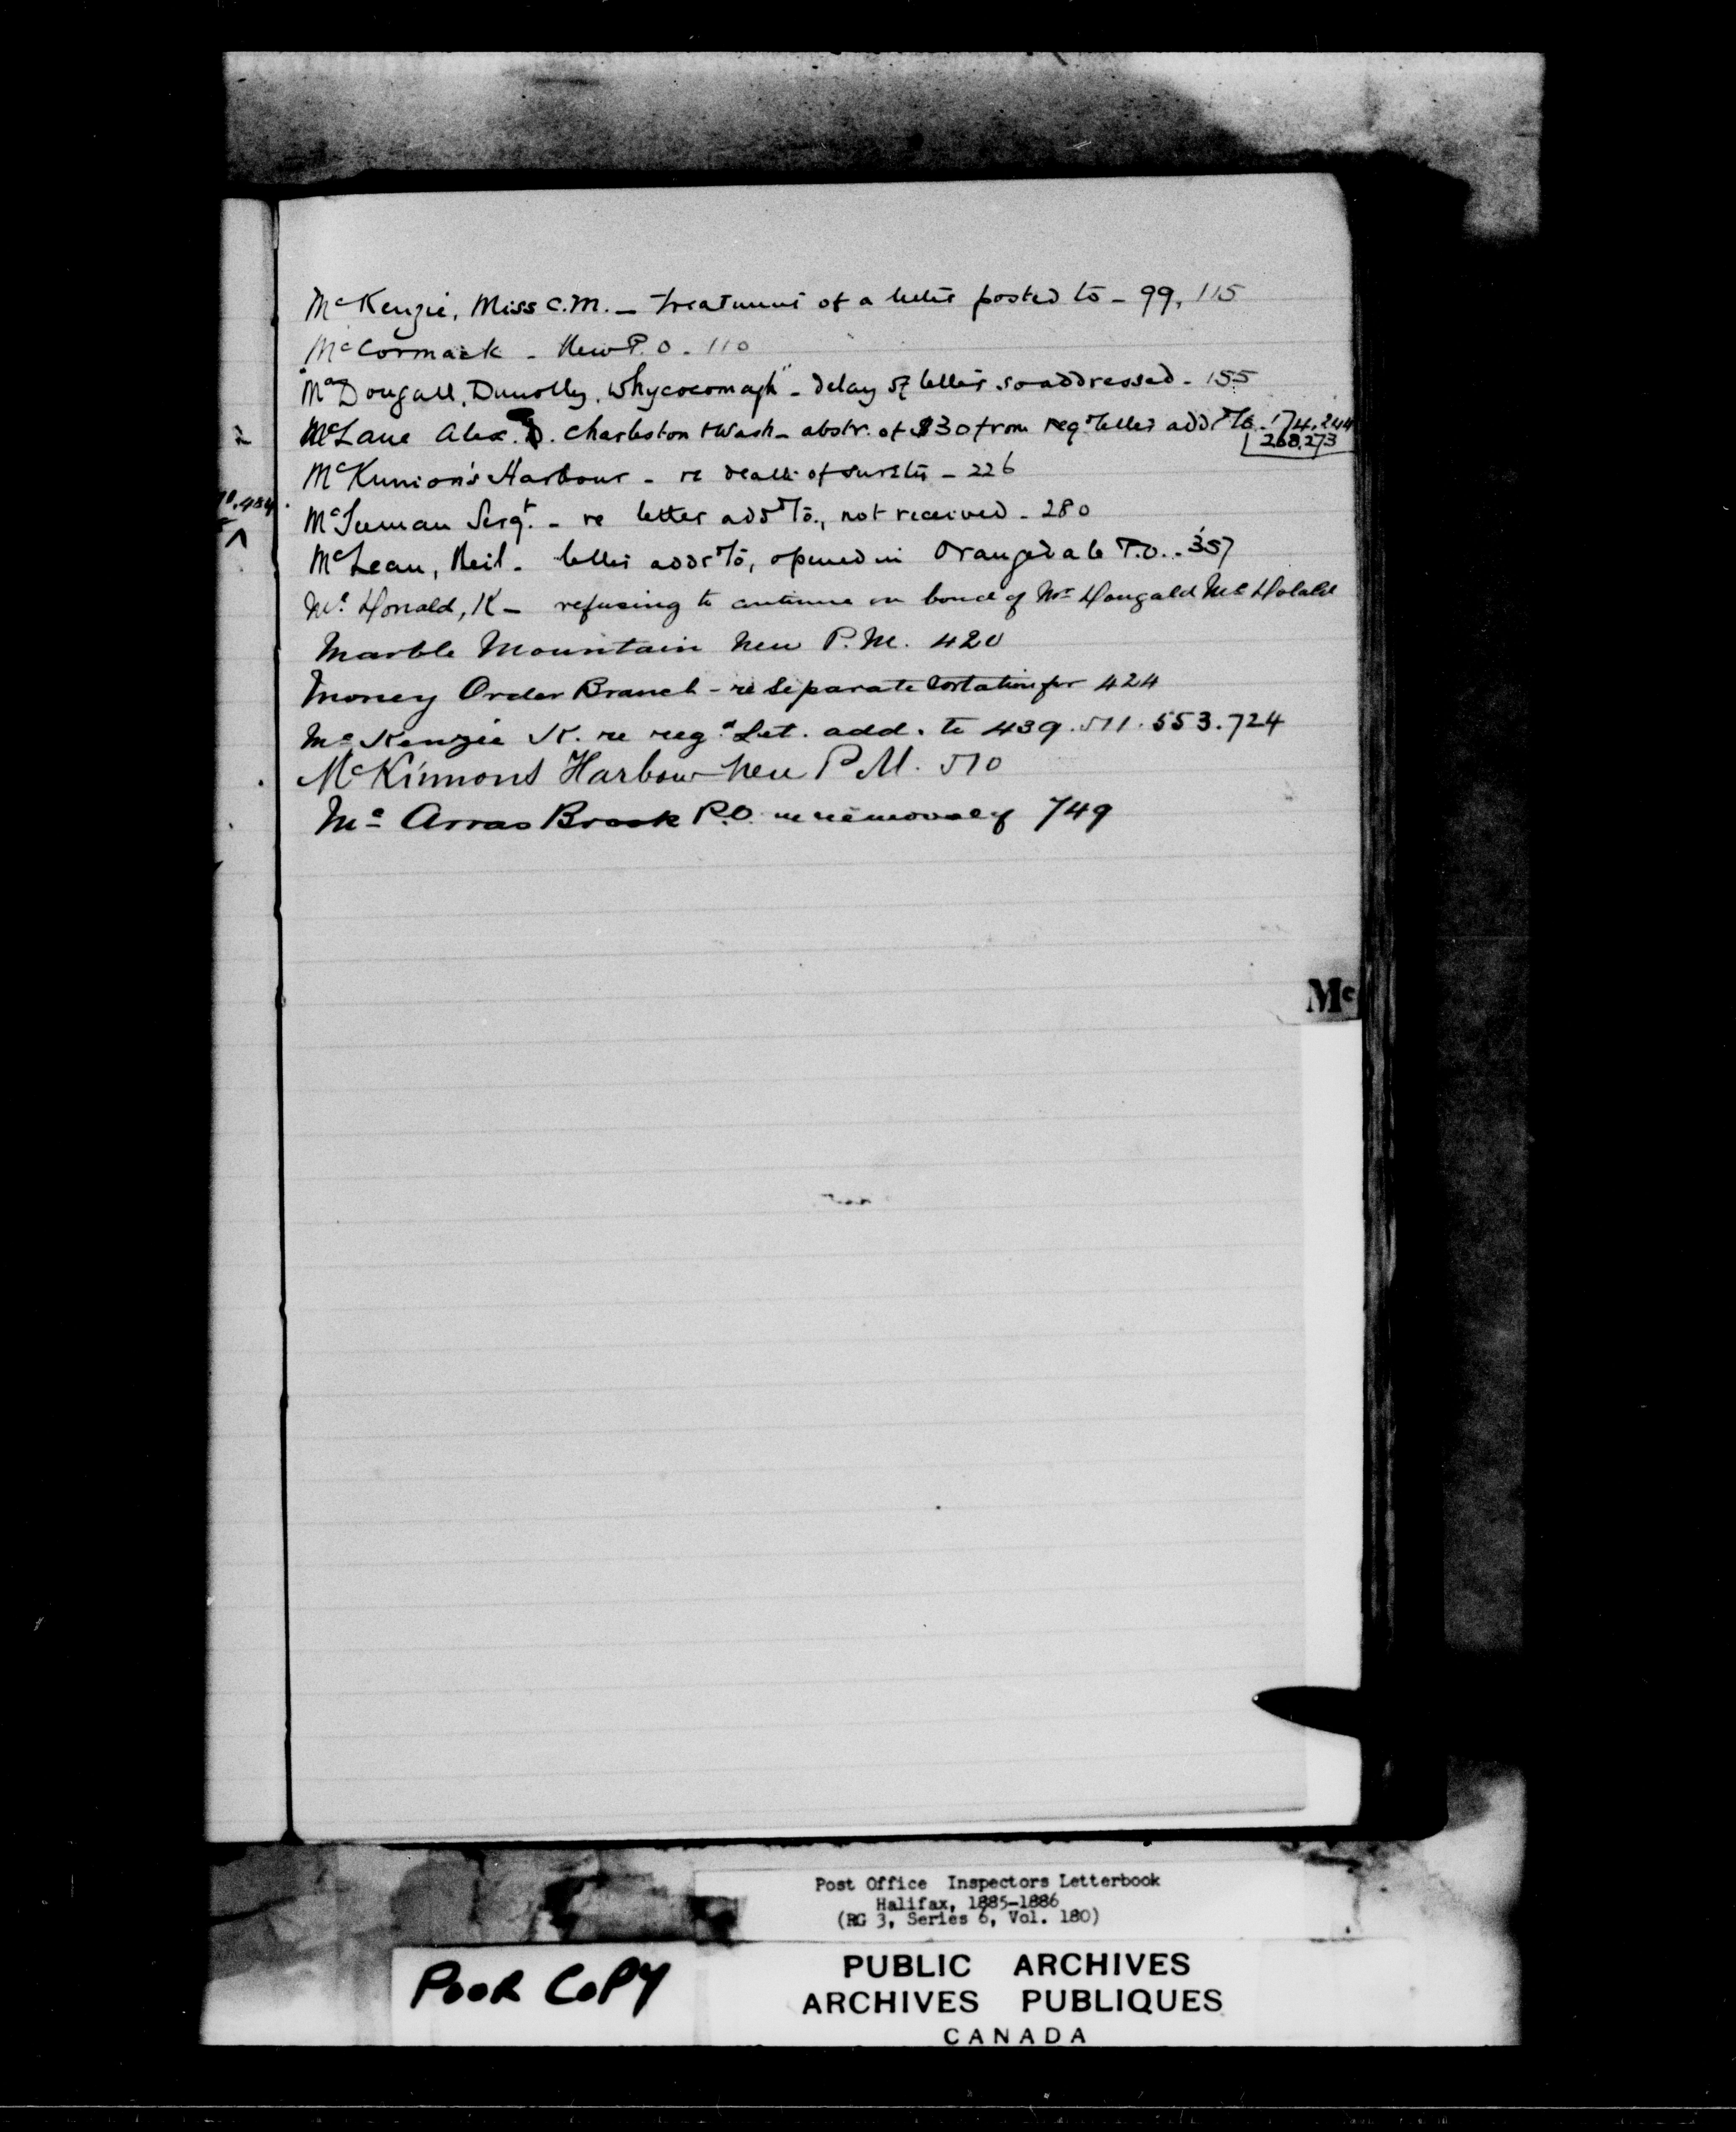 McKenzie, Miss C.M. — treatment of a letter posted to — 99, 115
McCormack — New P.O. 110
"McDougall, Dunolly, Whycocomagh" — delay of letter so addressed — 155
McLane Alex. D. Charleston Wash — abstr. of $30 from regd letter addrd to. 174, 244
268, 273
McKinnon's Harbour — re death of surety — 226
70, 484
Sergt. — re letter addrd to, not received — 280
McLean, Neil — letter addrd to, opened in Orangedale P.O. 357
McDonald, K — refusing to continue on bond of Mr Dougald
Marble Mountain New P.M. 420
Money Order Branch — re separate for 424
McKenzie K. re regd Let. add. to 439. 511. 553. 724
McKinnons Harbour New P.M. 510
Mc Arras Brook P.O. re removal of 749
Mc
Post Office Inspectors Letterbook
Halifax, 1885-1886
(RG 3, Series 6, Vol. 180)
POOR COPY
PUBLIC ARCHIVES
ARCHIVES PUBLIQUES
CANADA